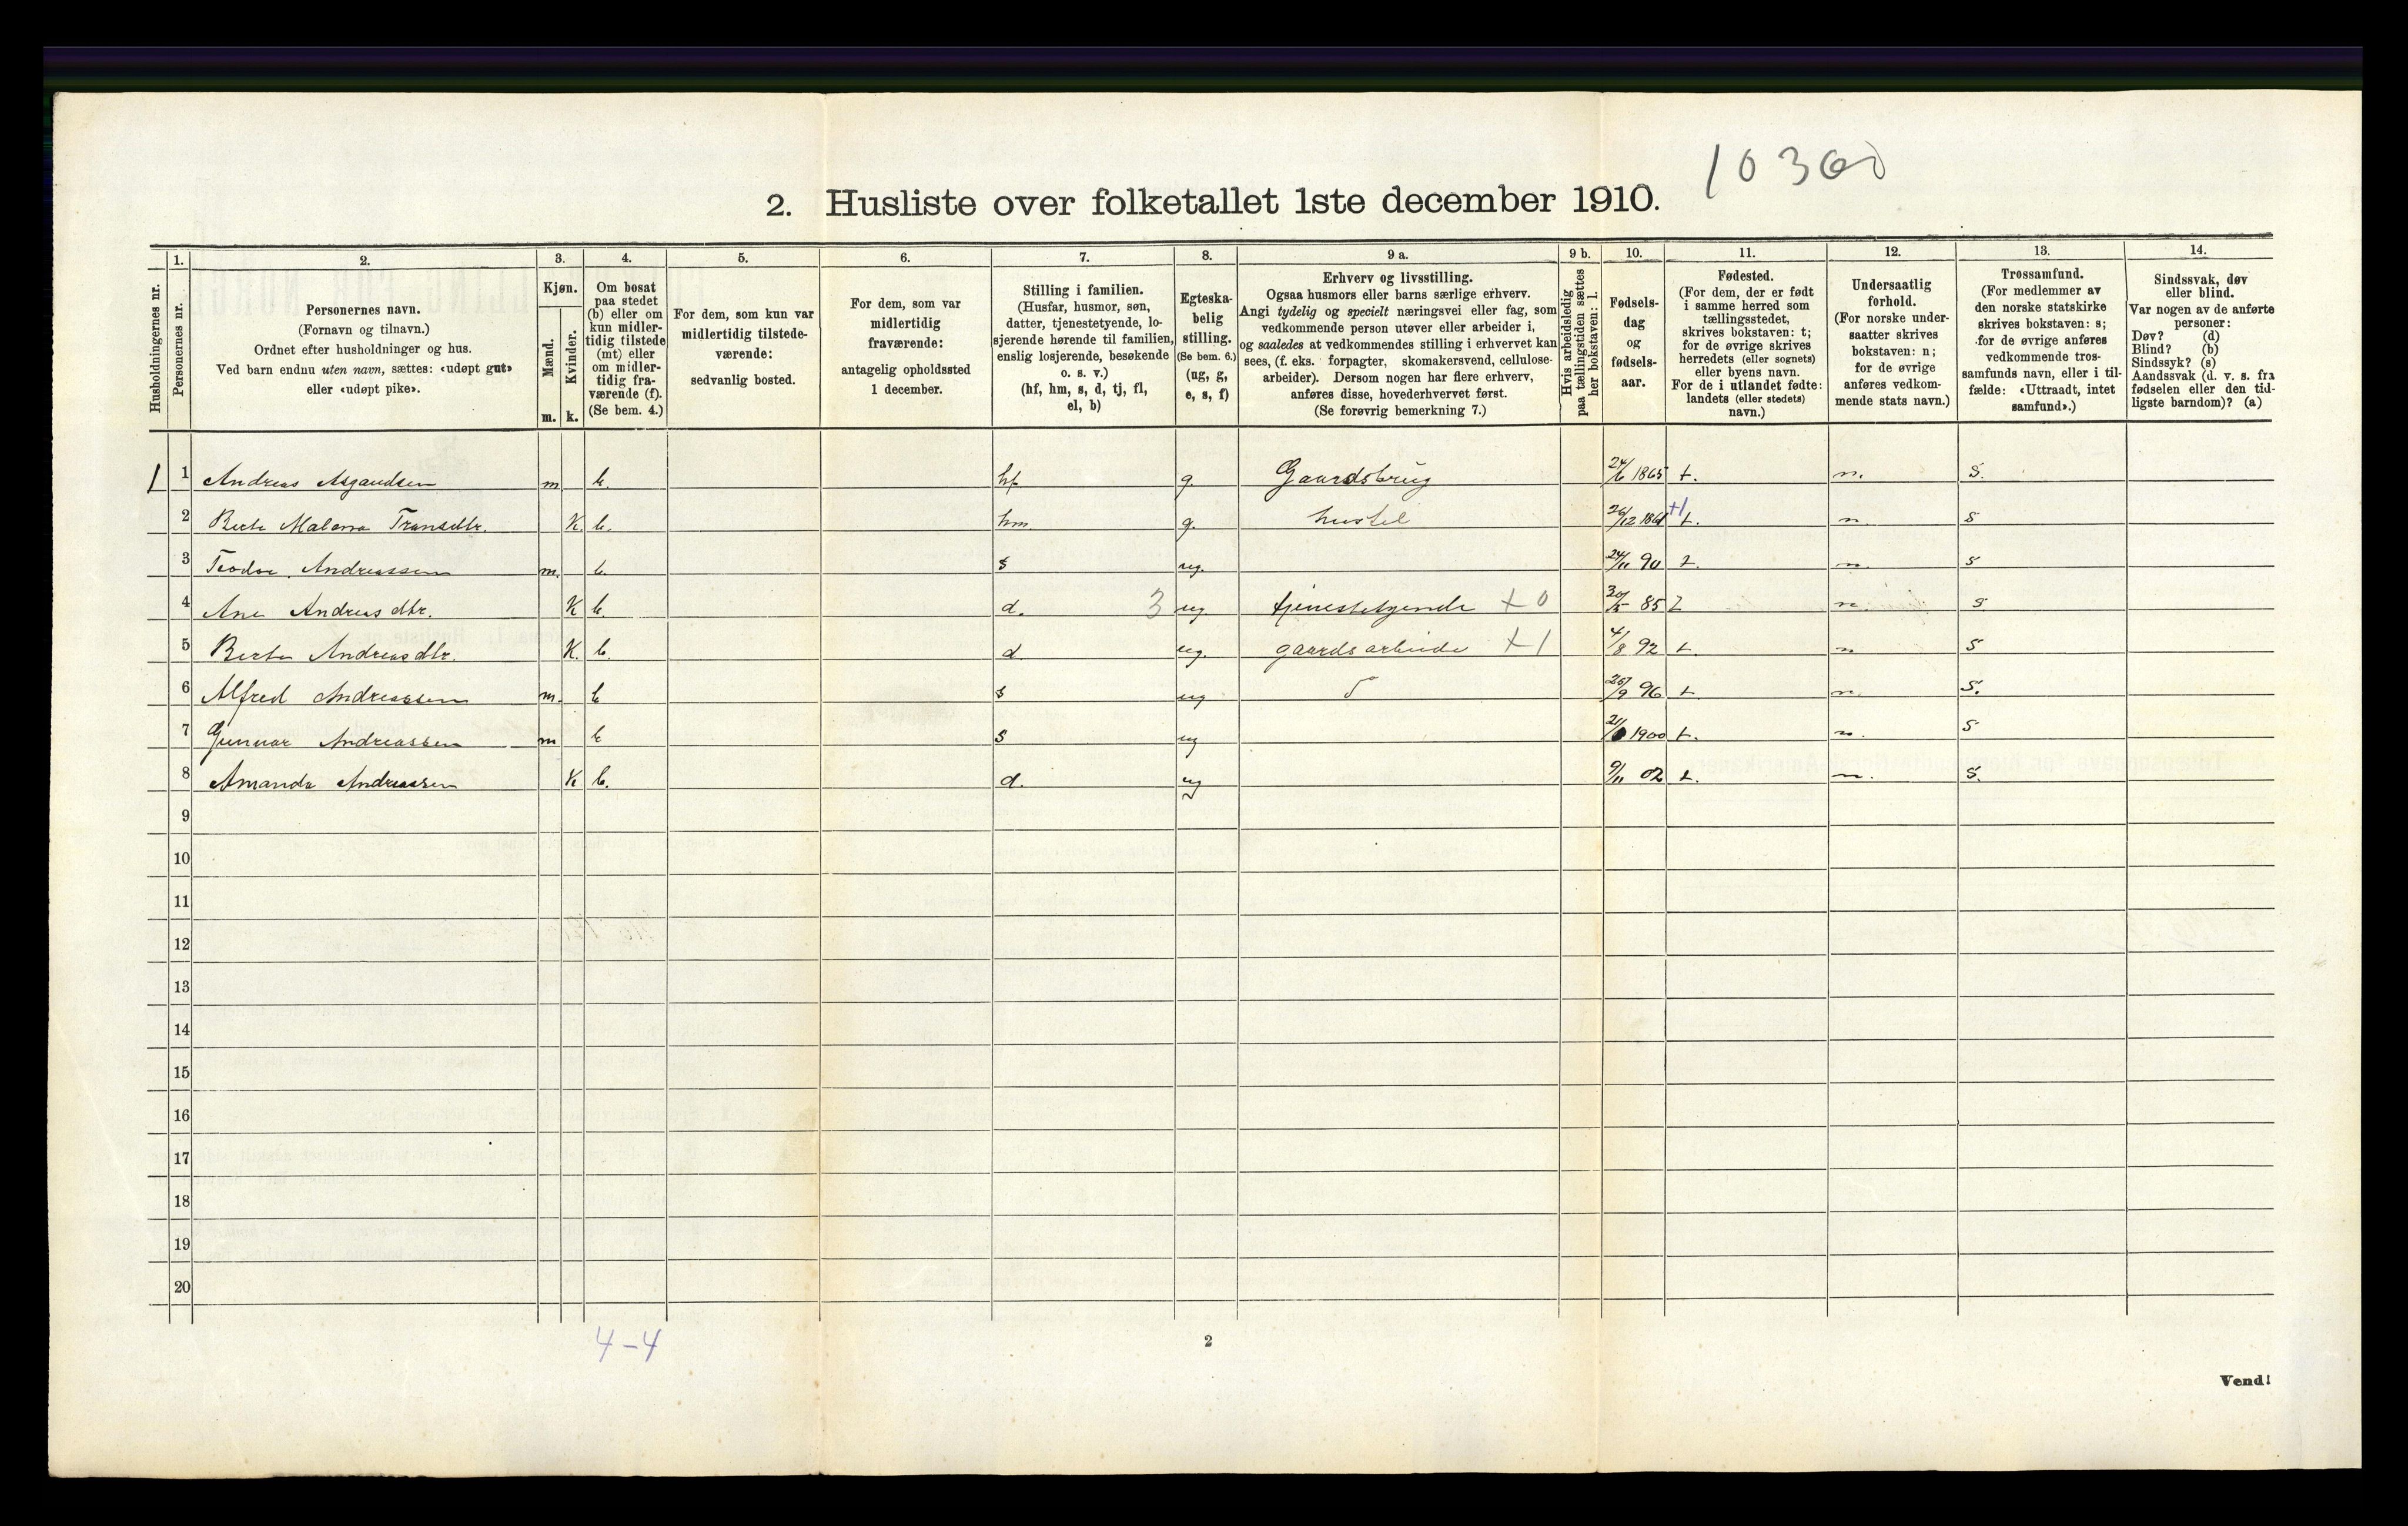 10300
2. Husliste over folketallet 1ste december 1910.
Husholdningernes nr.
1.
Personernes nr.
2.
Personernes navn.
(Fornavn og tilnavn.)
Ordnet efter husholdninger og hus.
Ved barn endnu uten navn, sættes: «udøpt gut»
eller «udøpt pike».
3.
Kjøn.
Mænd.
Kvinder.
m. k.
4.
Om bosat
paa stedet
(b) eller om
kun midler-
tidig tilstede
(mt) eller
om midler-
tidig fra-
værende (f).
(Se bem. 4.)
5.
For dem, som kun var
midlertidig tilstede-
værende:
sedvanlig bosted.
6.
For dem, som var
midlertidig
fraværende:
antagelig opholdssted
1 december.
7.
Stilling i familien.
(Husfar, husmor, søn,
datter, tjenestetyende, lo-
sjerende hørende til familien,
enslig losjerende, besøkende
o. s. v.)
(hf, hm, s, d, tj, fl,
el, b)
8.
Egteska-
belig
stilling.
(Se bem. 6.)
(ug, g,
e, s, f)
9 a.
Erhverv og livsstilling.
Ogsaa husmors eller barns særlige erhverv.
Angi tydelig og specielt næringsvei eller fag, som
vedkommende person utøver eller arbeider i,
og saaledes at vedkommendes stilling i erhvervet kan
sees, (f. eks. forpagter, skomakersvend, cellulose-
arbeider). Dersom nogen har flere erhverv,
anføres disse, hovederhvervet først.
(Se forøvrig bemerkning 7.)
9 b.
Hvis arbeidsledig
paa tællingstiden sættes
her bokstaven: l.
10.
Fødsels-
dag
og
fødsels-
aar.
11.
Fødested.
(For dem, der er født
i samme herred som
tællingsstedet,
skrives bokstaven: t;
for de øvrige skrives
herredets (eller sognets)
eller byens navn.
For de i utlandet fødte:
landets (eller stedets)
navn.)
12.
Undersaatlig
forhold.
(For norske under-
saatter skrives
bokstaven: n;
for de øvrige
anføres vedkom-
mende stats navn.)
13.
Trossamfund.
(For medlemmer av
den norske statskirke
skrives bokstaven: s;
for de øvrige anføres
vedkommende tros-
samfunds navn, eller i til-
fælde: «Uttraadt, intet
samfund».)
14.
Sindssvak, døv
eller blind.
Var nogen av de anførte
personer:
Døv? (d)
Blind? (b)
Sindssyk? (s)
Aandssvak (d. v. s. fra
fødselen eller den tid-
ligste barndom)? (a)
1 1 Andreas m b. hf g. Gaardsbrug 24/6 1865 t. n. S.
2 Malena K. b. hm g. hustel 26/12 1861 t. n. S
3 Teodor Andreassen m. b. s ug. 24/11 90 t. n. S
4 Ane Andreasdtr. K b. d. 3 ug tjenestetyende +0 30/5 85 t n. S.
5 Berta Andreasdtr. K. b. d ug. gaardsarbeide +1 4/8 92 t. n S
6 Alfred Andreassen m. b s ug 96 t n. S.
7 Gunnar Andreassen m b s ug 1900 t. n. S
8 Amanda Andreassen K b. d. ug 9/11 02 t. n. S.
9
10
11
12
13
14
15
16
17
18
19
20
4-4
2
Vend!